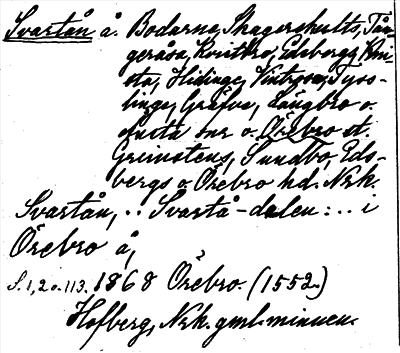 Svartån å. Bodarne, Skagershults, Tån-
geråsa, Kvistbro, Edsbergs, Kni-
sta, Hidinge, Vintrosa, Tyss-
linge, Gräfve, Långbro o.
Ånsta snr o. Örebro st.
Grimstens, Sundbo, Eds-
bergs o Örebro hd. Nrk.
Svartån, .. Svartå-dalen: .. i
Örebro å,
S. 1, 2 o. 113. 1868 Örebro. (1552.)
Hofberg, Nrk. gml. minnen.